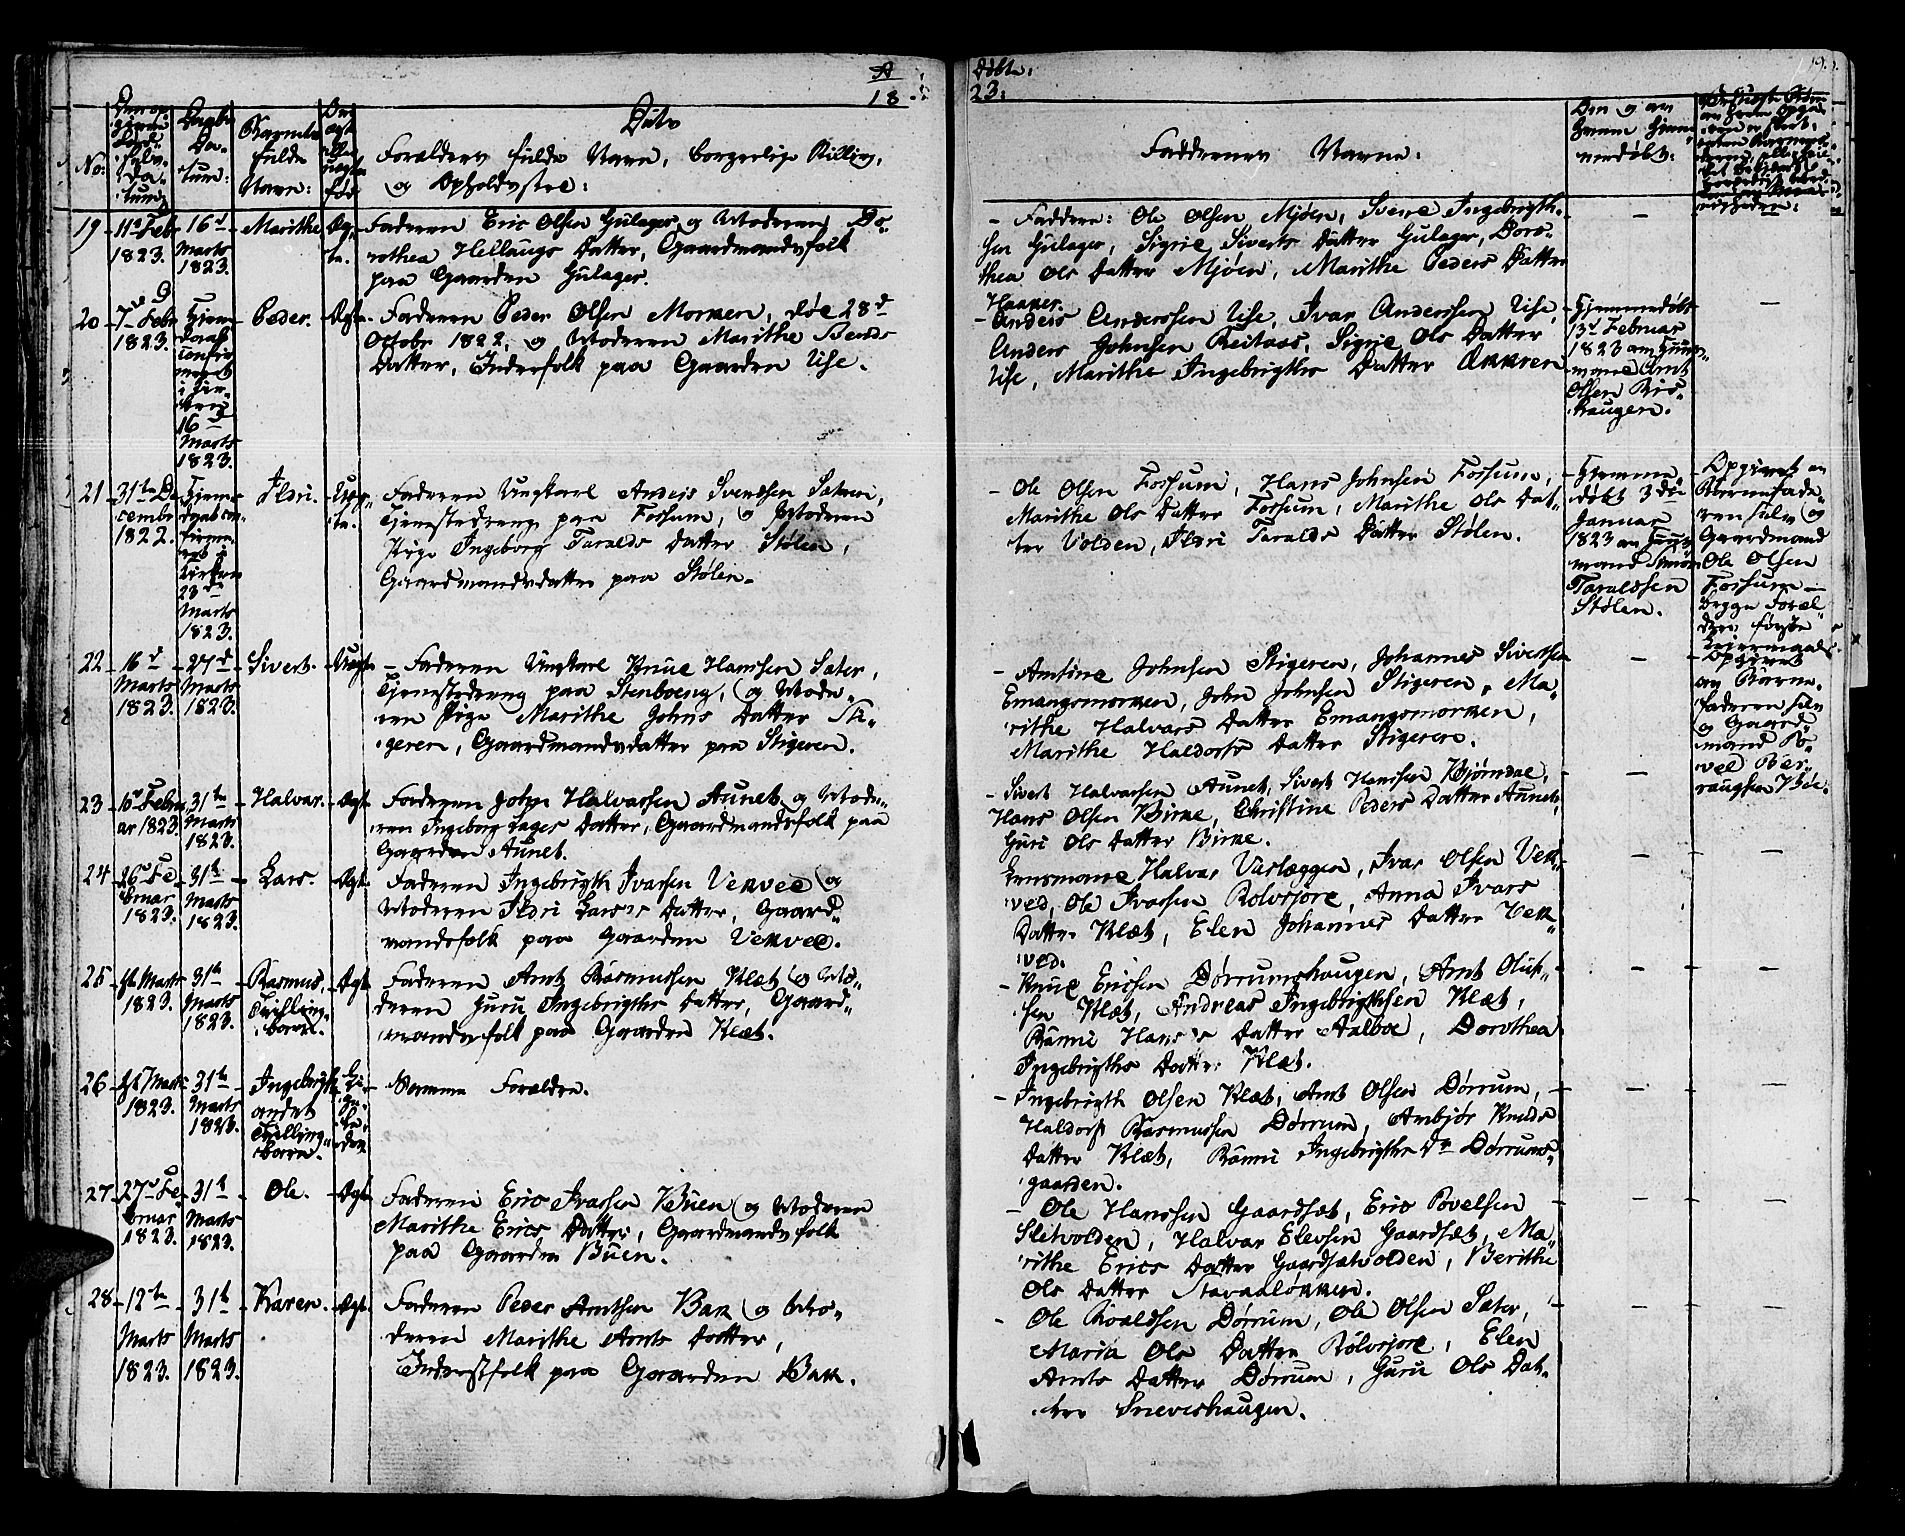 A
18
Døbte.
23.
19.
No.
Daabs
Da-
tum:
Barnets
fulde
Navn:
Dito
Forældres fulde Navn, borgerlige Stilling,
og Opholdssted:
Faddernes Navne.
Om og am
hjemmedøbt:
19
11te Febr
1823.
16d
Marts
1823.
Marithe
Æg-
te.
Faderen Eric Olsen Gulager og Moderen Do-
rothea Hellaugs Datter, Gaardmandsfolk
paa Gaarden Gulager.
- Faddere: Ole Olsen Mjøen, Svend Ingebrigth-
sen Gulager, Sigrie Siverts Datter Gulager, Doro-
thea Ols Datter Mjøen, Marithe Peders Datter
Haaker.
20
7de Febr
1823.
Hjem
Daab
confir-
meret
i Kir-
ken
16d
Marts
1823.
Peder.
Ægte.
Faderen Peder Olsen Morken, død 28d
Octobr 1822, og Moderen Marithe Bends
Datter, Inderfolk paa Gaarden Vise.
- Anders Anderssen Vise, Ivar Anderssen Vise,
Anders Johnsen Reitaas, Sigrie Ols Datter
Vise, Marithe Ingebrigths Datter Aakren
Hjemmedøbt
13d Februar
1823 am Huus-
mand Arnt
Olsen Ris-
haugen.
21
31te De-
cembr
1822.
Hjemme-
daab con-
firme-
ret i
Kirken
23d
Marts
1823.
Ildri.
Uæg-
te.
Faderen Ungkarl Anders Svendsen Sæter,
Tjenestedreng paa Fossum, og Moderen
Pige Ingeborg Taralds Datter Stølen,
Gaardmandsdatter paa Stølen.
- Ole Olsen Fossum, Hans Johnsen Fossum,
Marithe Ols Datter Fossum, Marithe Ols Dat-
ter Volden, Ildri Taralds Datter Stølen.
Hjemme-
døbt 3de
Januar
1823 am Huus-
mand Simon
Taraldssen
Stølen.
Opgivet am
Barnefade-
ren selv og
Gaardmand
Ole Olsen
Fossum
begge Foræl-
dres første
Leiermaal
22
16d
Marts
1823.
27d
Marts
1823.
Sivert.
Uægte
- Faderen Ungkarl Knud Hanssen Sæter,
Tjenestedreng paa Stenboeng, og Mode-
ren Pige Marithe Johns Datter Sti-
geren, Gaardmandsdatter paa Stigeren.
- Amtine Johnsen Stigeren, Johannes Sivertsen
Emangsmorken, John Johnsen Stigeren, Ma-
rithe Halvars Datter Emangsmorken,
Marithe Haldorss Datter Stigeren.
Opgivet
am Barne-
faderen selv
og Gaard
mand Po-
vel Ber-
raugsen Böe.
23
10de Febru
ar 1823.
31te
Marts
1823.
Halvar.
Ægte
Faderen John Halvarssen Aunet og Mode-
ren Ingeborg Lages Datter, Gaardmandsfolk paa
Gaarden Aunet.
- Sivert Halvarssen Aunet, Sivert Hanssen Bjørndal,
Hans Olsen Birke, Christine Peders Datter Aunet,
Guri Ols Datter Birke.
24
26de Fe-
bruar
1823.
31te
Marts
1823.
Lars.
Ægte
Faderen Ingebrigth Ivarsen Vekved og
Moderen Ildri Larses Datter, Gaard-
mandsfolk paa Gaarden Vekved.
Lensmand Halvar Vartæggen, Ivar Olsen Vek-
ved, Ole Ivarsen Rolvsjord, Anna Ivars
Datter Klæt, Elen Johannes Datter Vek-
ved.
25
Marts
1823.
31te
Marts
1823.
Rasmus,
Tvilling-
barn.
Ægte
Faderen Arnt Rasmussen Klæt og Mo-
deren Guru Ingebrigths Datter, Gaard-
mandsfolk paa Gaarden Klæt.
- Knud Ericsen Dørrumshaugen, Arnt Oluf-
sen Klæt, Andreas Ingebrigthsen Klæt,
Ranni Hanses Datter Aalboe, Dorothea
Ingebrigths Datter Klæt.
26
Marts
1823.
31te
Marts
1823.
Ingebrigth
andet
Tvilling-
barn.
Li-
ge-
le-
des
Samme Forældre.
- Ingebrigth Olsen Klæt, Arnt Olsen Dørrum,
Haldors Rasmussen Dørrum, Anbjør Knuds
Datter Klæt, Ranni Ingebrigths Dr Dørrums-
gaarden.
27
27de Fe-
bruar
1823.
31te
Marts
1823.
Ole.
Ægte
Faderen Eric Ivarsen Büen og Moderen
Marithe Erics Datter, Gaardmandsfolk
paa Gaarden Büen.
- Ole Hanssen Gaardsæt, Eric Povelsen
Sletvolden, Halvar Elevsen Gaardsæt, Ma-
rithe Erics Datter Gaardsætvolden, Berithe
Ols Datter Stavaaløkken.
28
12te
Marts
1823.
31te
Marts
1823.
Karen.
Ægte
Faderen Peder Arntsen Bak og Mo-
deren Marithe Arnts Datter,
Inderstfolk paa Gaarden Bak.
- Ole Roaldsen Dørrum, Ole Olsen Sæter,
Maria Ols Datter Rolvsjord, Elen
Arnts Datter Dørrum, Guru Ols Dat-
ter Snieveshaugen.